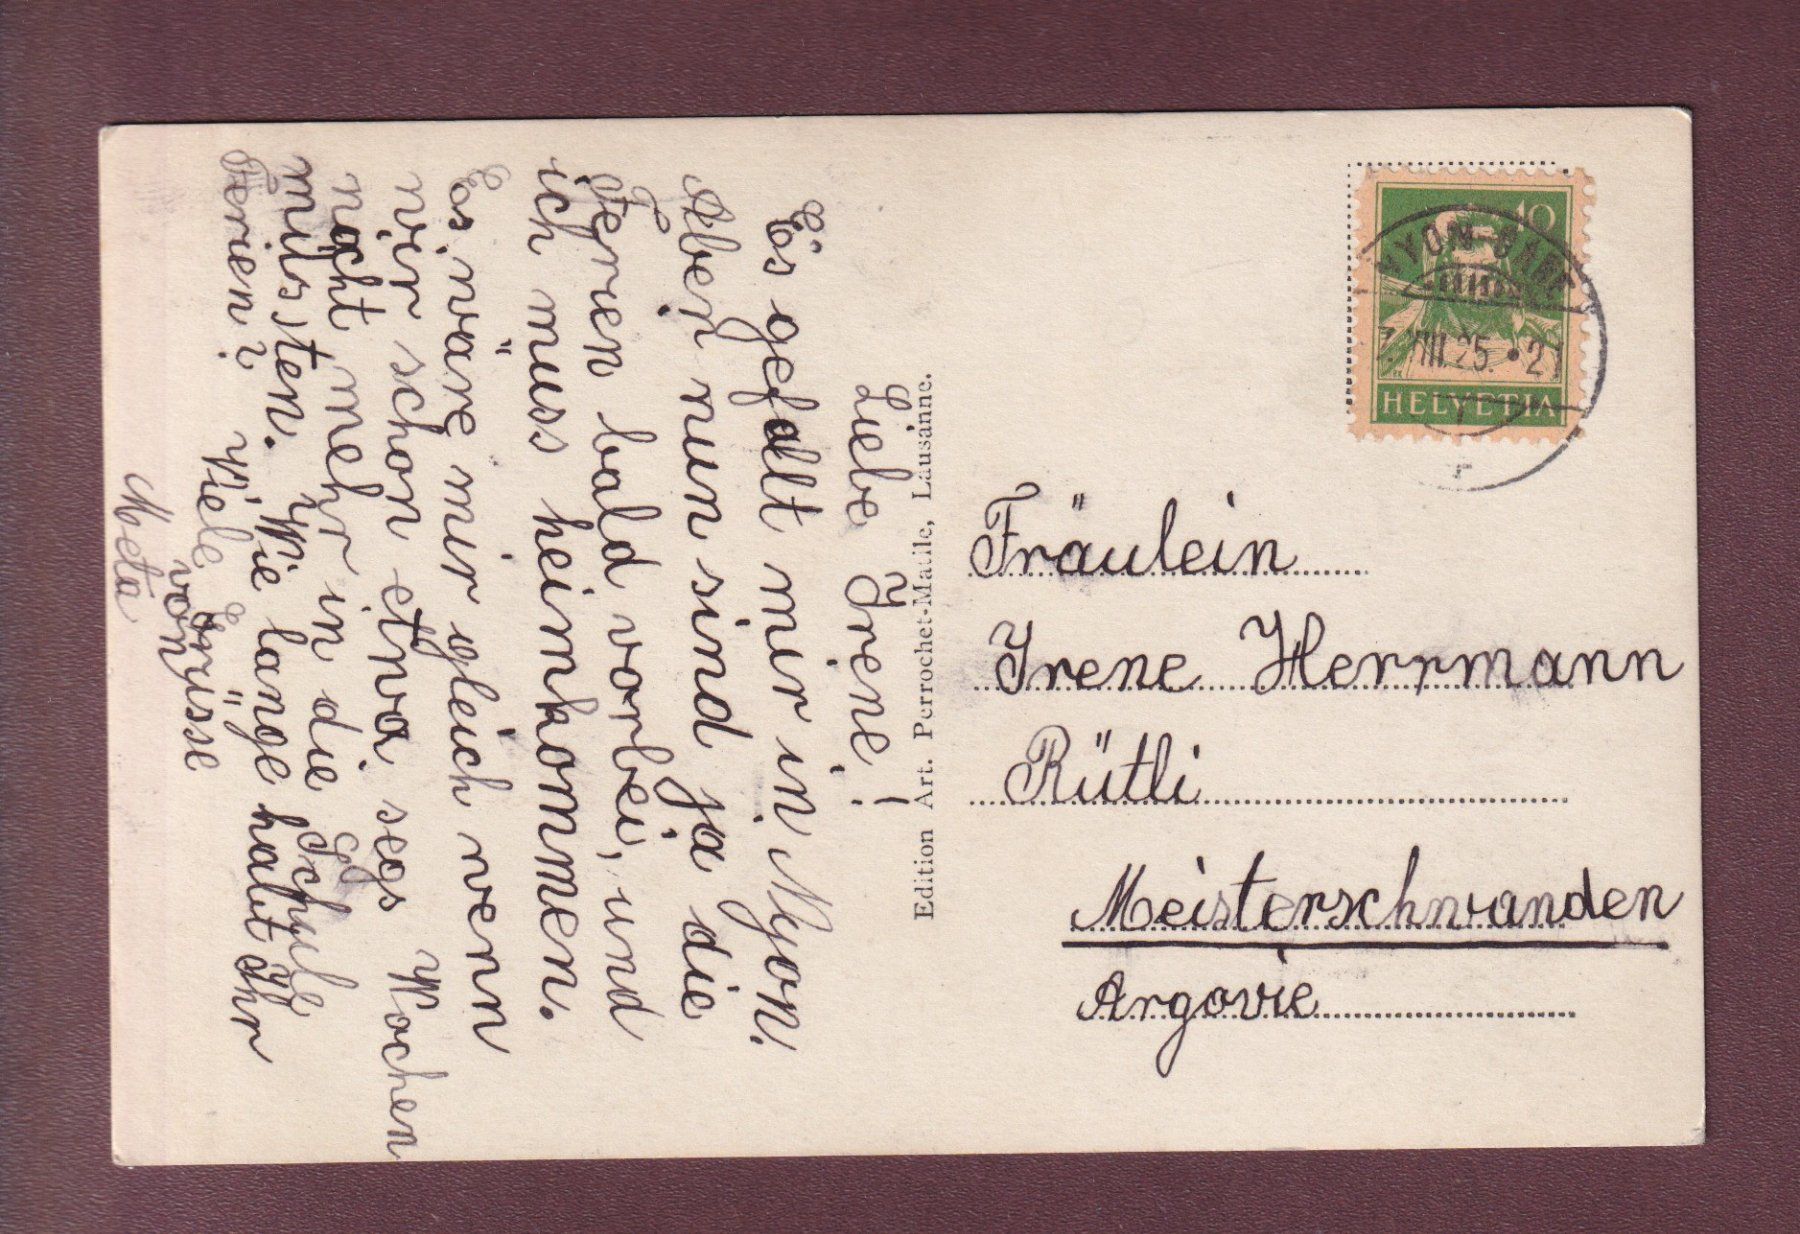 Liebe Irene!
Es gefallt mir in Nyon.
Aber nun sind ja die
Ferien bald vorbei, und
ich muss heimkommen.
Es wäre mir gleich wenn
wir schon etwa segs Wochen
nocht mehr in die Schule
müssten. Wie lange habt Ihr
Ferien? Viele Grüsse
von
Meta
Edition Art. Perrochet-Matile, Lausanne.
10
NYON
VIII.25.•21
HELVETIA
Fräulein
Irene Herrmann
Rütli
Meisterschwanden
Argovie